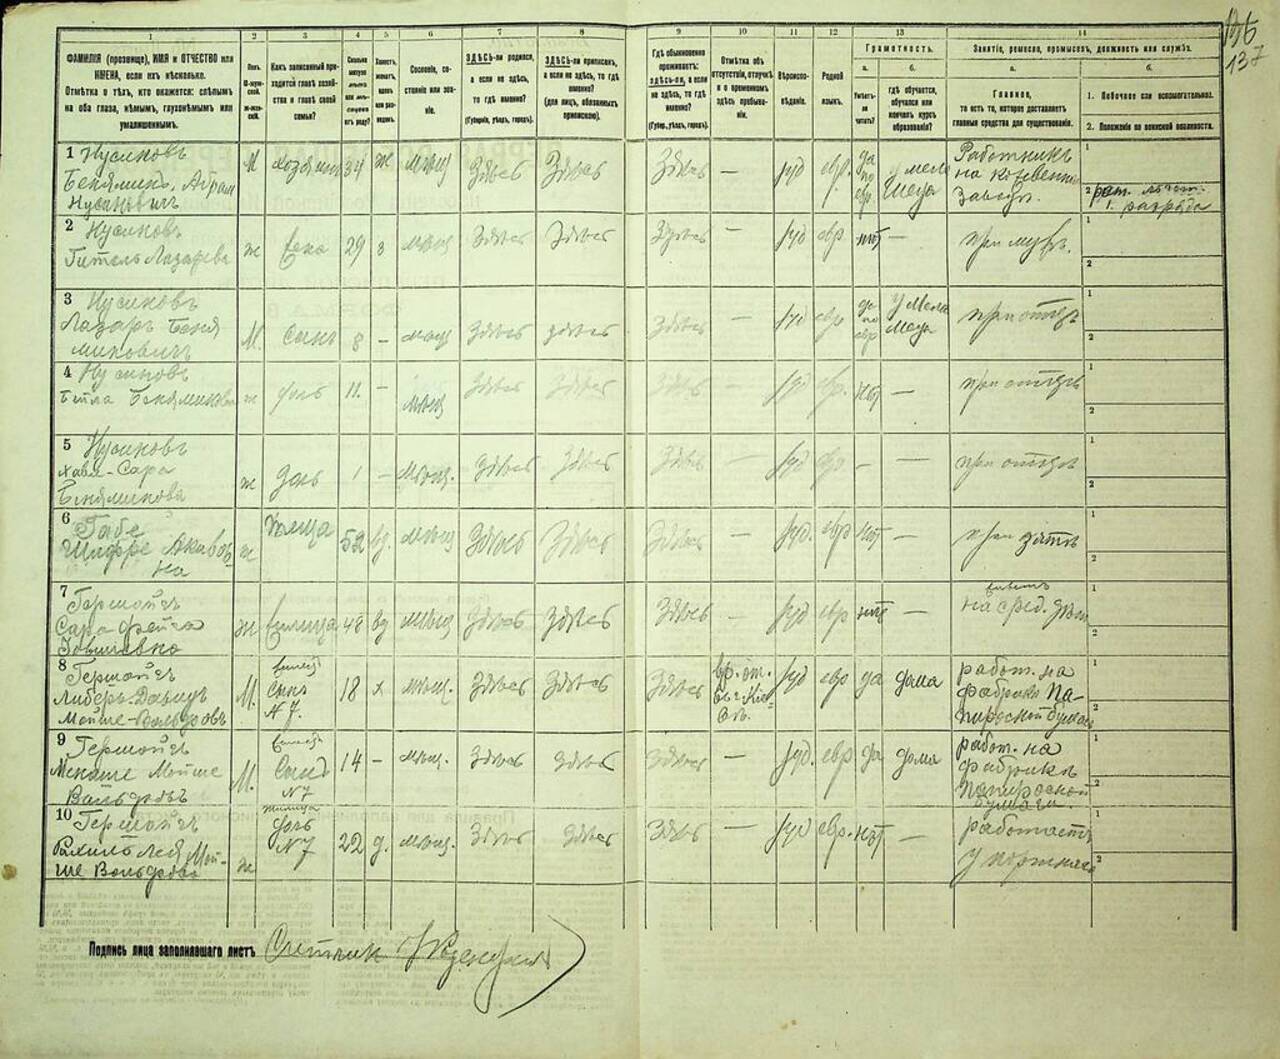 136
137
1 2 3 4 5 6 7 8 9 10 11 12 13 14
ФАМИЛІЯ (прозвище), ИМЯ и ОТЧЕСТВО или
ИМЕНА, если ихъ нѣсколько.
Отмѣтка о тѣхъ, кто окажется: слѣпымъ
на оба глаза, нѣмымъ, глухонѣмымъ или
умалишеннымъ.
Полъ.
М-муж-
ской.
Ж-жен-
скій.
Какъ записанный при-
ходится главѣ хозяй-
ства и главѣ своей
семьи?
Сколько
минуло
лѣтъ
или мѣ-
сяцевъ
отъ роду?
Холостъ,
женатъ,
вдовъ
или раз-
веденъ.
Сословіе, со-
стояніе или зва-
ніе.
ЗДѢСЬ-ли родился,
а если не здѣсь,
то гдѣ именно?
(Губернія, уѣздъ, городъ).
ЗДѢСЬ-ли приписанъ,
а если не здѣсь, то гдѣ
именно?
(для лицъ, обязанныхъ
припискою).
Гдѣ обыкновенно
проживаетъ:
здѣсь-ли, а если
не здѣсь, то гдѣ
именно?
(Губер., уѣздъ, городъ).
Отмѣтка объ
отсутствіи, отлучкѣ
и о временномъ
здѣсь пребыва-
ніи.
Вѣроиспо-
вѣданіе.
Родной
языкъ.
Грамотность.
а.
Умѣетъ-
ли
читать?
б.
гдѣ обучается,
обучался или
кончилъ курсъ
образованія?
Занятіе, ремесло, промыселъ, должность или служба.
а.
Главное,
то есть то, которое доставляетъ
главныя средства для существованія.
б.
1. Побочное или вспомогательное.
2. Положеніе по воинской повинности.
1 Нусиновъ
Бенямин, Абрам
Нусинович
М хозяинъ 34 ж мѣщ Здѣсь Здѣсь Здѣсь — Iуд евр. да
по
евр. у мела
меда Работникъ
на кожевенн
заводѣ.
1
2 рат. опол.
1. разряда
2 Нусиновъ
Гитель Лазарева
ж жена 29 з мѣщ Здѣсь Здѣсь Здѣсь — Iуд евр нѣт — при мужѣ.
1
2
3 Нусиновъ
Лазаръ Беня
минович
М. Сынъ 8 — мѣщ Здѣсь здѣсь Здѣсь — Iуд евр да
по
евр у мела
меда при отцѣ
1
2
4 Нусиновъ
Бейла Бенямінова
ж дочь 11. — мѣщ Здѣсь Здѣсь Здѣсь — Iуд евр. нѣт — при отцѣ
1
2
5 Нусиновъ
Хава-Сара
Бенямінова
ж дочь 1 — мѣщ. Здѣсь Здѣсь Здѣсь — Iуд евр — — при отцѣ
1
2
6 Габе
Шифре Якавов-
на
ж 52 вд. мѣщ Здѣсь Здѣсь Здѣсь — Iуд. евр нѣт — при зятѣ
1
2
7 Гершойгъ
Сара Фейга
Іовшевна
ж жилица 48 вд мѣщ Здѣсь Здѣсь Здѣсь Iуд евр нѣт — живетъ
на сред. дѣт
1
2
8 Гершойгъ
Либеръ-Давидъ
Мойше-Вольфовъ
М. жилецъ
Сынъ
№ 7. 18 х мѣщ. Здѣсь Здѣсь Здѣсь вр. от.
въ г. Кіе-
вѣ. Iуд евр да дома работ. на
фабрикѣ па-
пиросной бумаги
1
2
9 Гершойгъ
Менаше Мойше
Вольфовъ
М. жилецъ
Сынъ
№ 7 14 — мѣщ. Здѣсь Здѣсь Здѣсь — Iуд. евр да дома работ. на
фабрикѣ
папиросной
бумаги.
1
2
10 Гершойгъ
Рахиль Лея Мой-
ше Вольфова
ж жилица
дочь
№ 7 22 д. мѣщ. Здѣсь Здѣсь Здѣсь — Iуд евр. нѣт — работаетъ
у портнаго
2
Подпись лица заполнявшаго листъ Счетчик